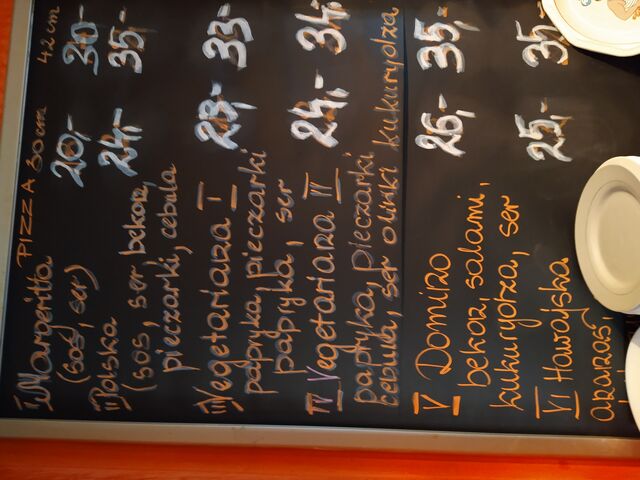 PIZZA 30cm 42cm
I Margeritta 20,- 30-
(sos, ser)
II Polska 24,- 35,-
(sos, ser, bekon,
pieczarki, cebula
III Vegetariana I 23,- 33-
papryka, pieczarki
papryka, ser
IV Vegetariana II 24,- 34,-
papryka, pieczarki
cebula, ser oliwki kukurydza
V Domino 26,- 35,-
bekon, salami,
kukurydza, ser
VI Hawajska 25,- 35,-
ananas,